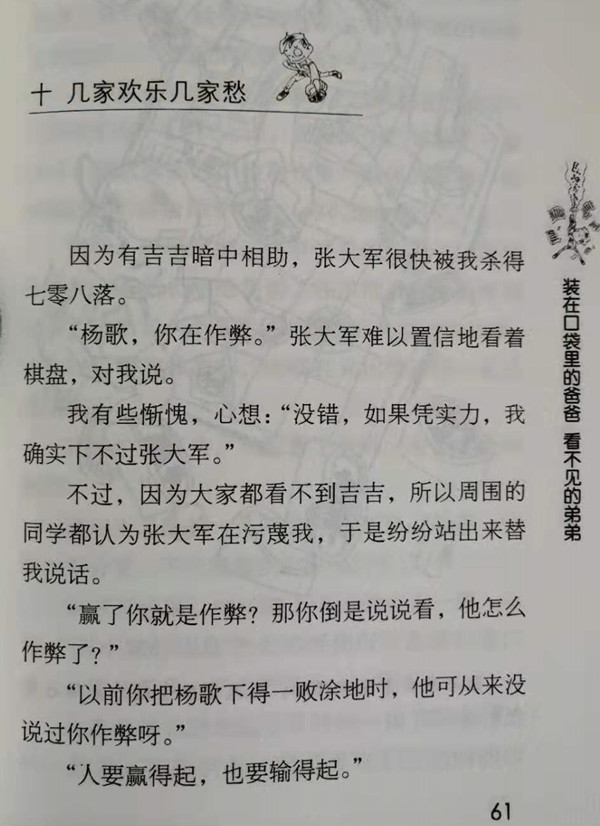 十 几家欢乐几家愁
因为有吉吉暗中相助，张大军很快被我杀得
七零八落。
“杨歌，你在作弊。”张大军难以置信地看着
棋盘，对我说。
我有些惭愧，心想：“没错，如果凭实力，我
确实下不过张大军。”
不过，因为大家都看不到吉吉，所以周围的
同学都认为张大军在污蔑我，于是纷纷站出来替
我说话。
“赢了你就是作弊？那你倒是说说看，他怎么
作弊了？”
“以前你把杨歌下得一败涂地时，他可从来没
说过你作弊呀。”
“人要赢得起，也要输得起。”
装在口袋里的爸爸 看不见的弟弟
61